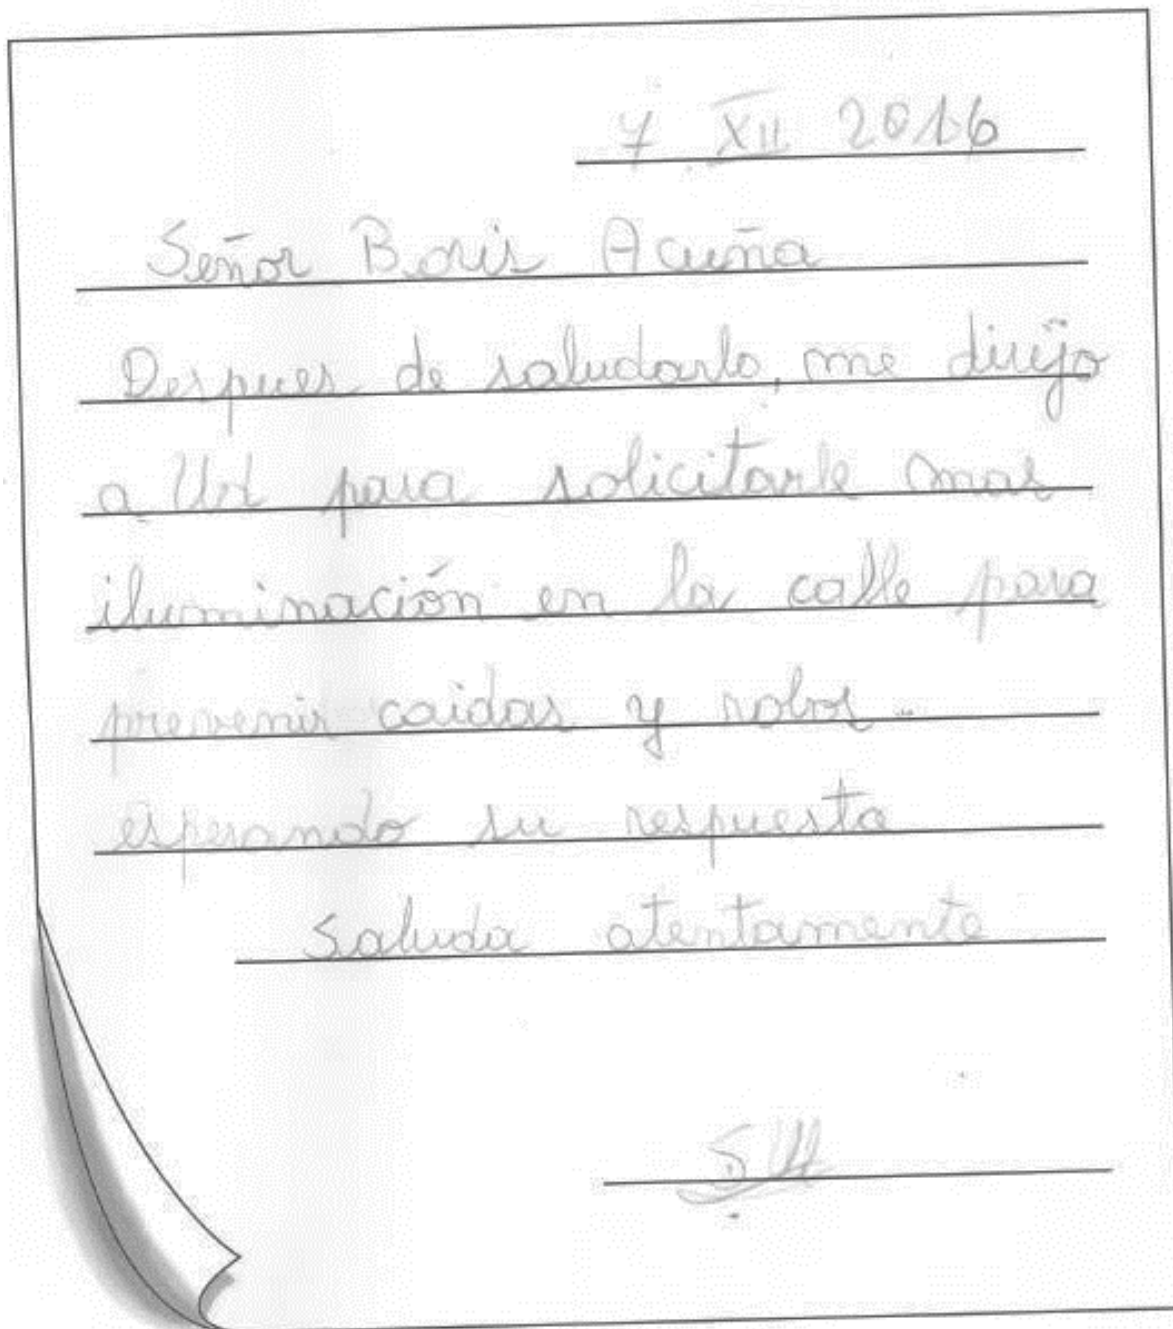 7 XII 2016
Señor Boris Acuña
Despues de saludarlo, me dirijo
a Ud para solicitarle mas
iluminación en la calle para
prevenir caidas y robos.
esperando su respuesta
Saluda atentamente
SH